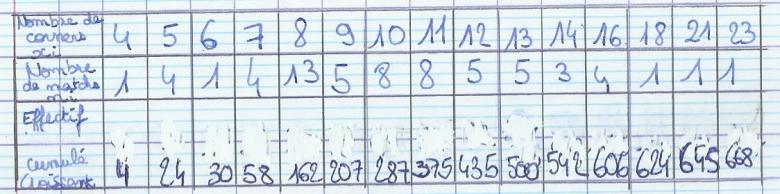 Nombre de
corners
xi 4 5 6 7 8 9 10 11 12 13 14 16 18 21 23
Nombre
de matchs
ni 1 4 1 4 13 5 8 8 5 5 3 4 1 1 1
Effectif
cumulé
Croissant 4 24 30 58 162 207 287 375 435 500 542 606 624 645 668